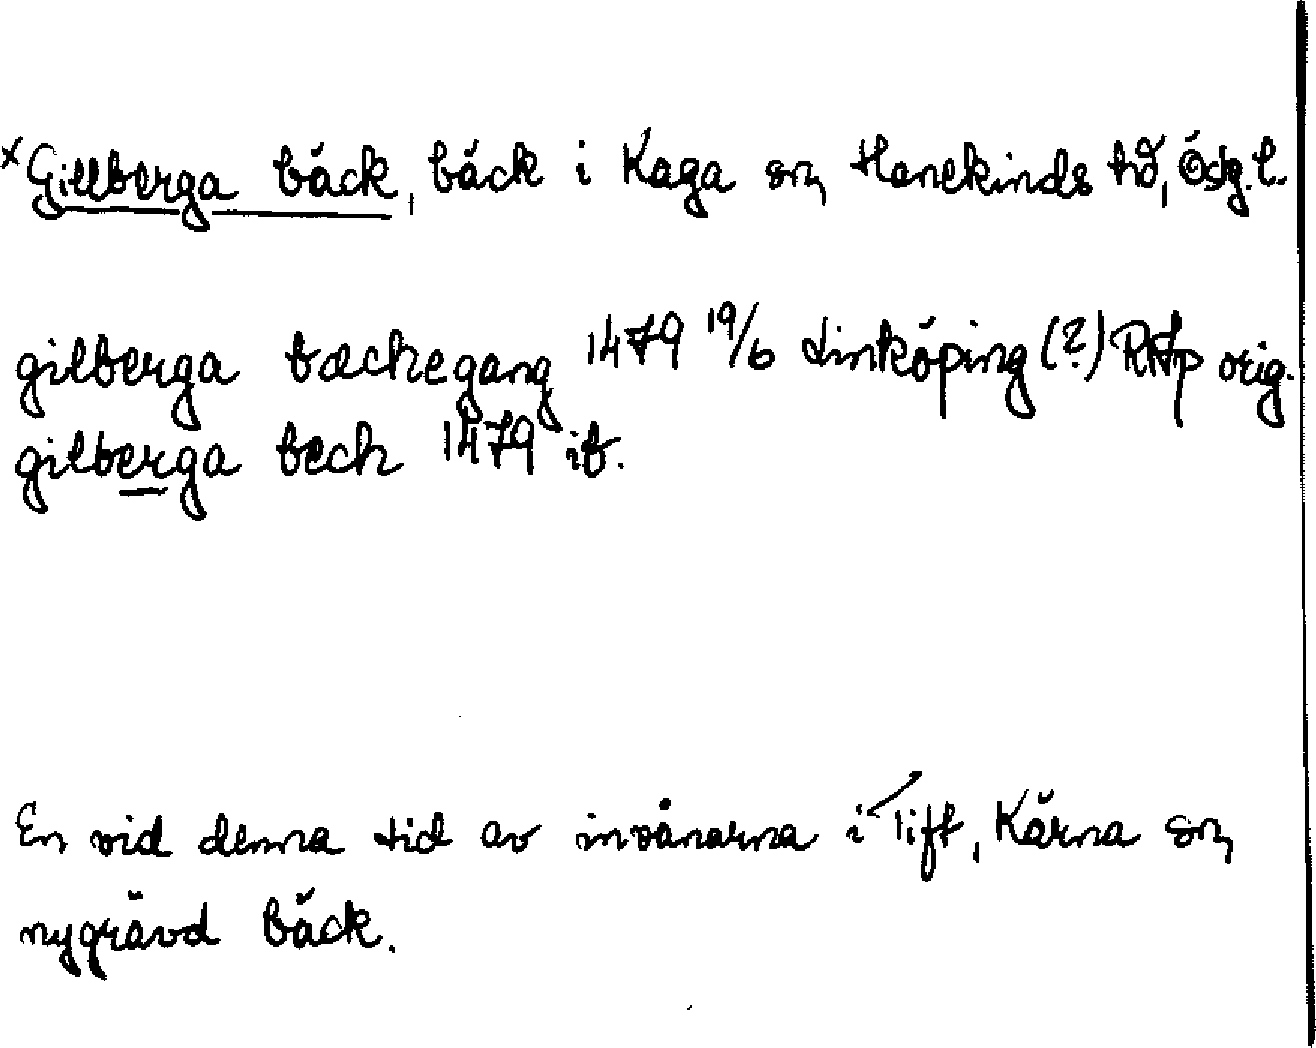 ×Gillberga bäck, bäck i Kaga sn, Hanekinds hd, Östg. l.
gilberga bæckegang 1479 19/6 Linköping (?) RAp orig.
gilberga beck 1479 ib.
En vid denna tid av invånarna i Tift, Kärna sn,
nygrävd bäck.